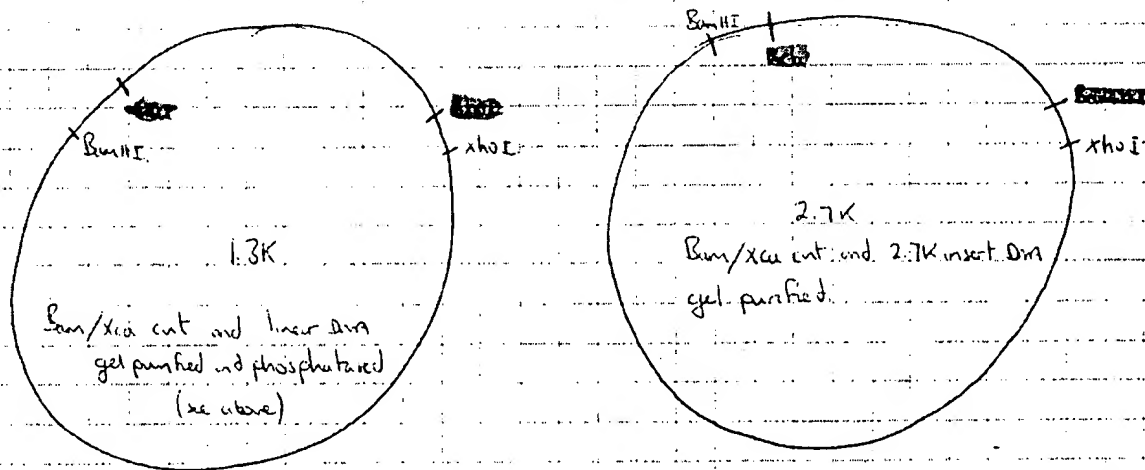 BamHI
xhoI
1.3K
Bam/Xca cut and linear DNA
gel purified and phosphatased
(see above)
BamHI
xhoI
2.7K
Bam/Xca cut and 2.7K insert DNA
gel purified.